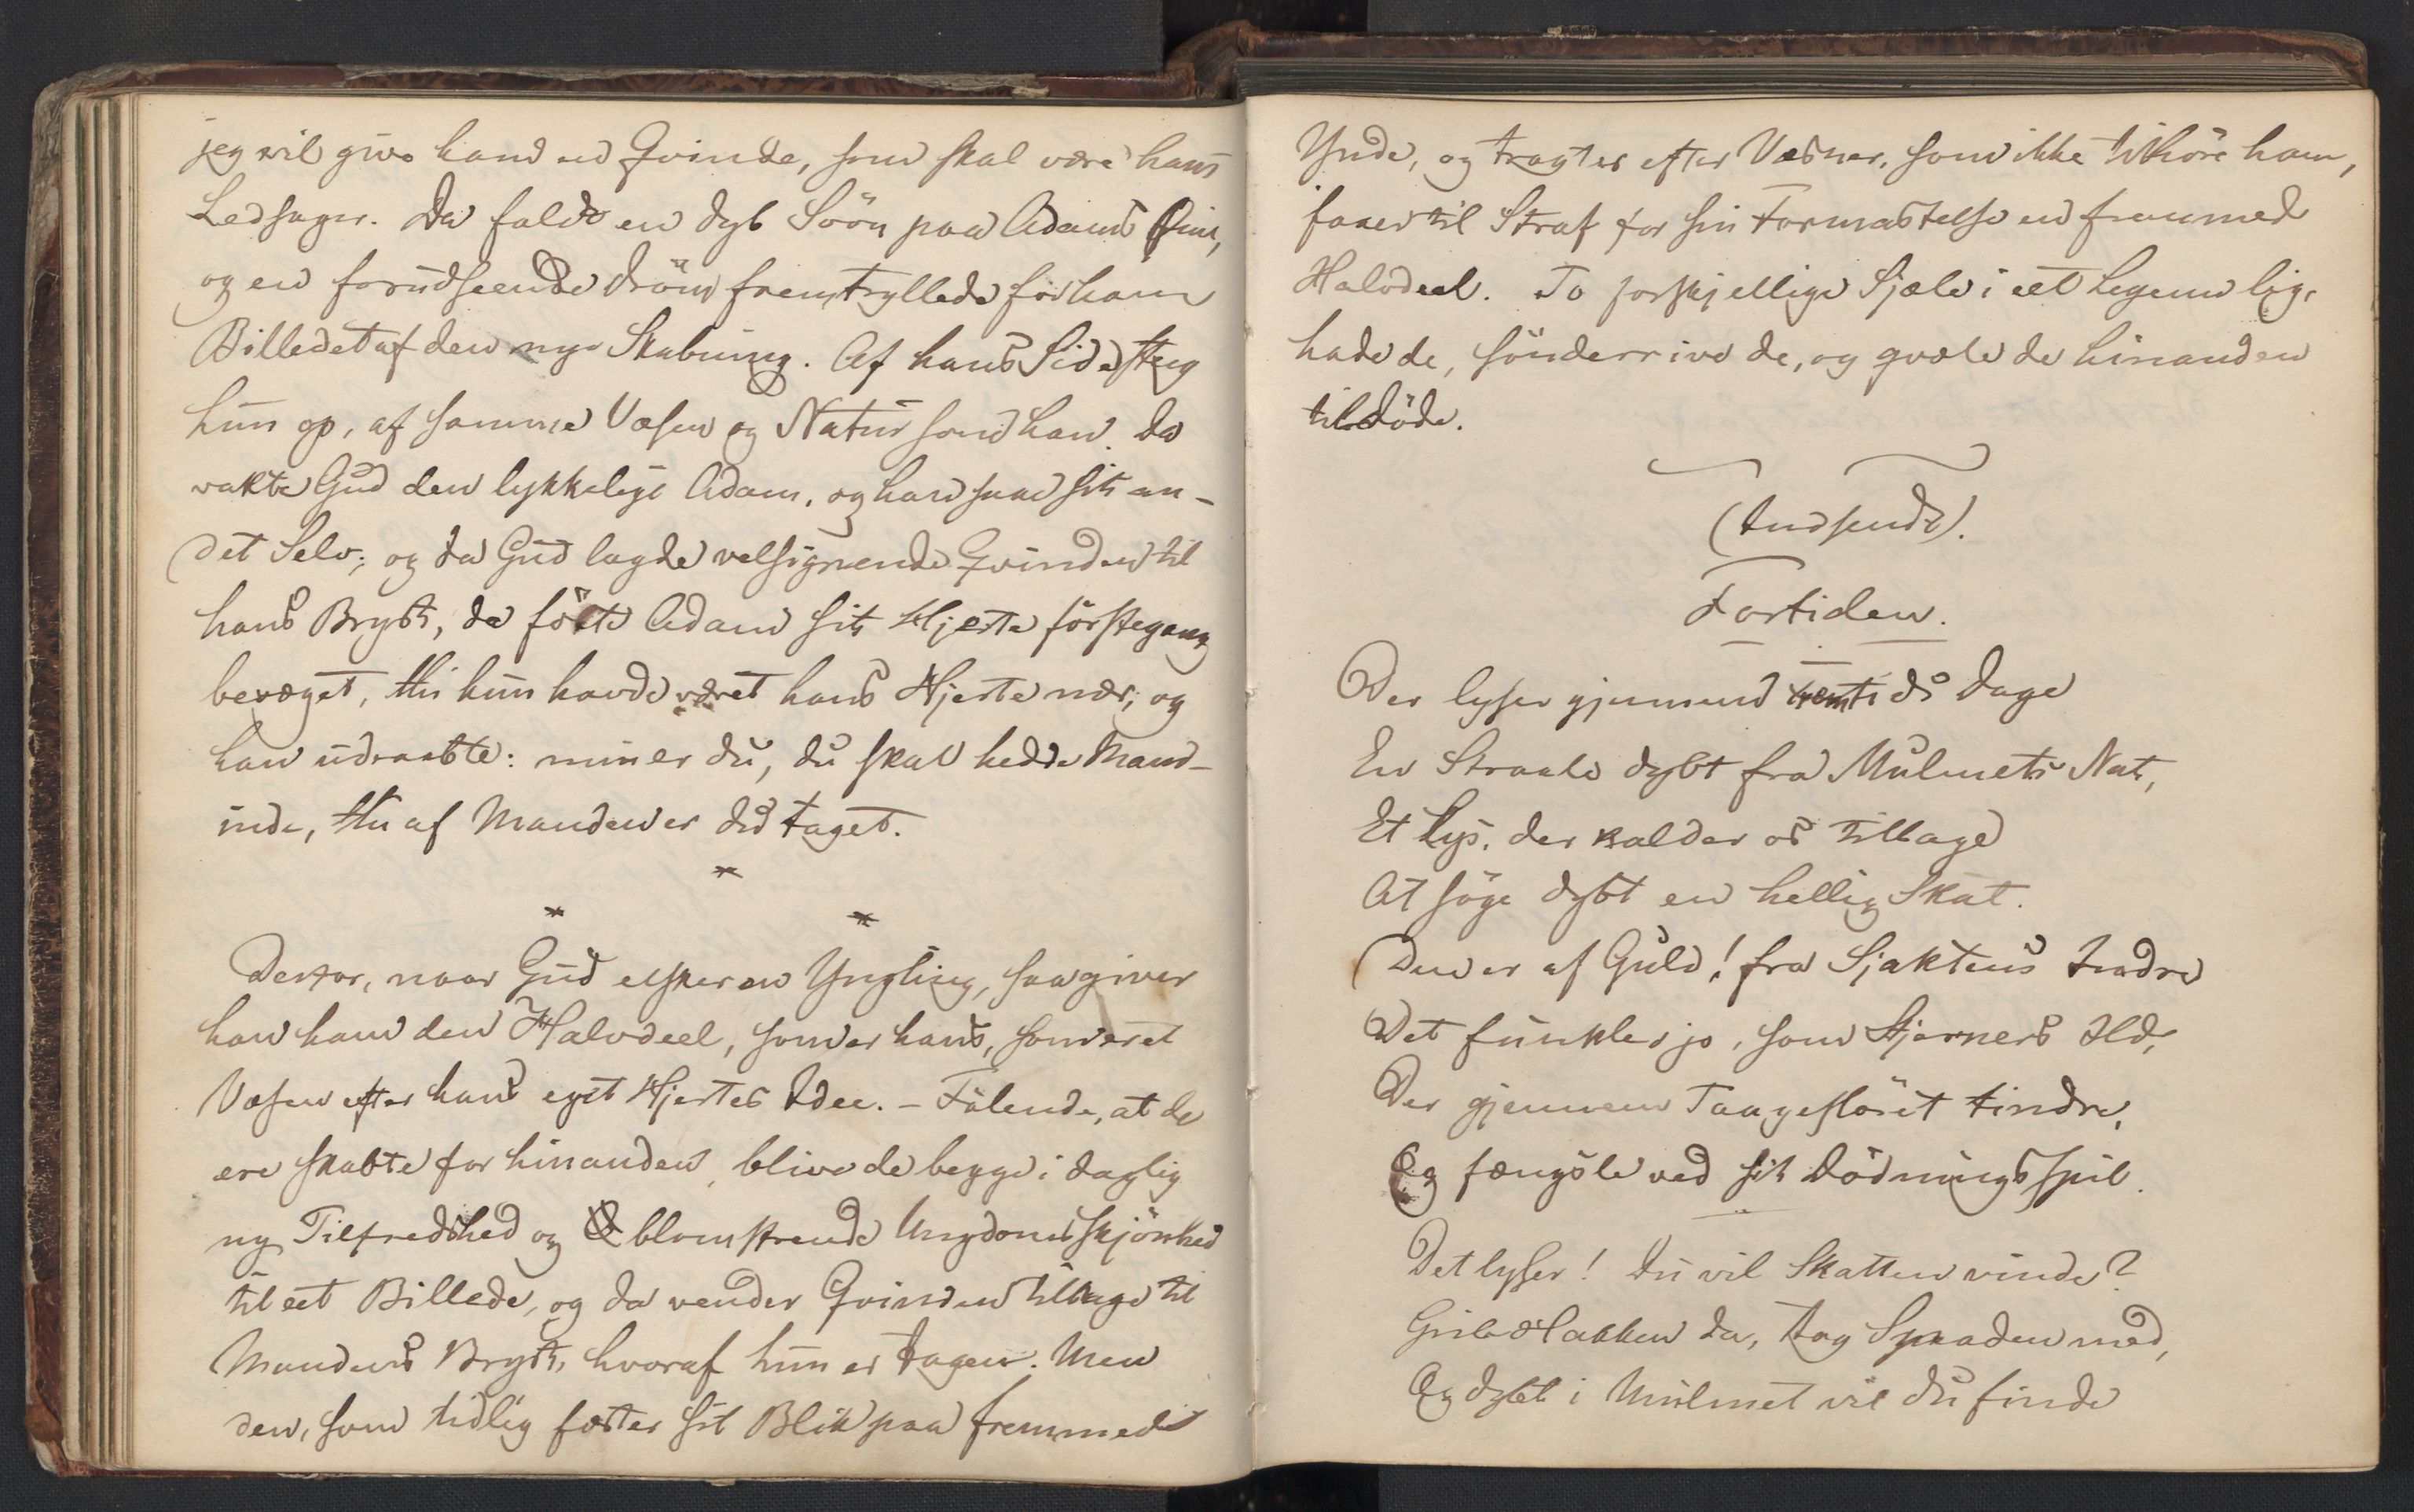 jeg vil give ham en Qvinde, som skal være hans
Ledsager. Da faldt en dyb Søvn paa Adams Øine,
og en forudseende Drøm fremtryllede for ham
Billedet af den nye Skabning. Af hans Side steeg
hun op, af samme Væsen og Natur som han. Da
vakte Gud den lykkelige Adam, og han saae sit an-
det Selv; og da Gud lagde velsignende Qvinden til
hans Bryst, da følte Adam sit Hjerte førstegang
bevæget, thi hun havde været hans Hjerte nær; og
han udraabte: min er du, du skal hedde Mand-
inde, thi af Manden er du taget.
*
* *
Derfor, naar Gud elsker en Yngling, saa giver
han ham den Halvdeel, som er hans, som er et
Væsen efter hans eget Hjertes Idee. – Følende, at de
ere skabte for hinanden, blive de begge i daglig
ny Tilfredshed og blomstrende Ungdomsskjønhed
til eet Billede, og da vender Qvinden tilbage til
Mandens Bryst, hvoraf hun er tagen. Men
den, som tidlig fæster sit Blik paa fremmede
Ynde, og tragter efter Væsner, som ikke tilhøre ham,
faaer til Straf for sin Formastelse en fremmed
Halvdeel. To forskjellige Sjæle i eet Legeme lig,
hade de, sønderrive de, og qvæle de hinanden
tildøde.
(Indsendt).
Fortiden.
Der lyser gjennem Fremtids Dage
En Straale dybt fra Mulmets Nat,
Et Lys, der kalder os tilbage
At søge dybt en hellig Skat.
Den er af Guld! fra Sjaktens Indre
Det funkler jo, som Stjerners Ild,
Der gjennem Taagesløret tindre,
Og fængsle ved sit Dødningsspil.
Det lyser! Du vil Skatten vinde?
Grib Hakken da, tag Spaden med,
Og dybt i Mulmet vil du finde